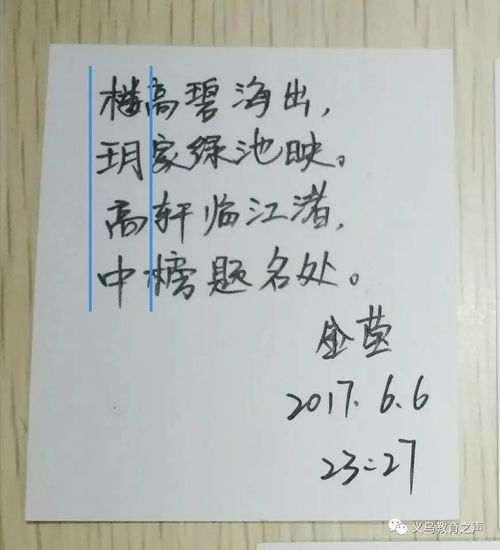 楼高碧海出，
玥家绿池映。
高轩临江渚，
中榜题名处。
金莹
2017.6.6
23:27
义乌教育之声